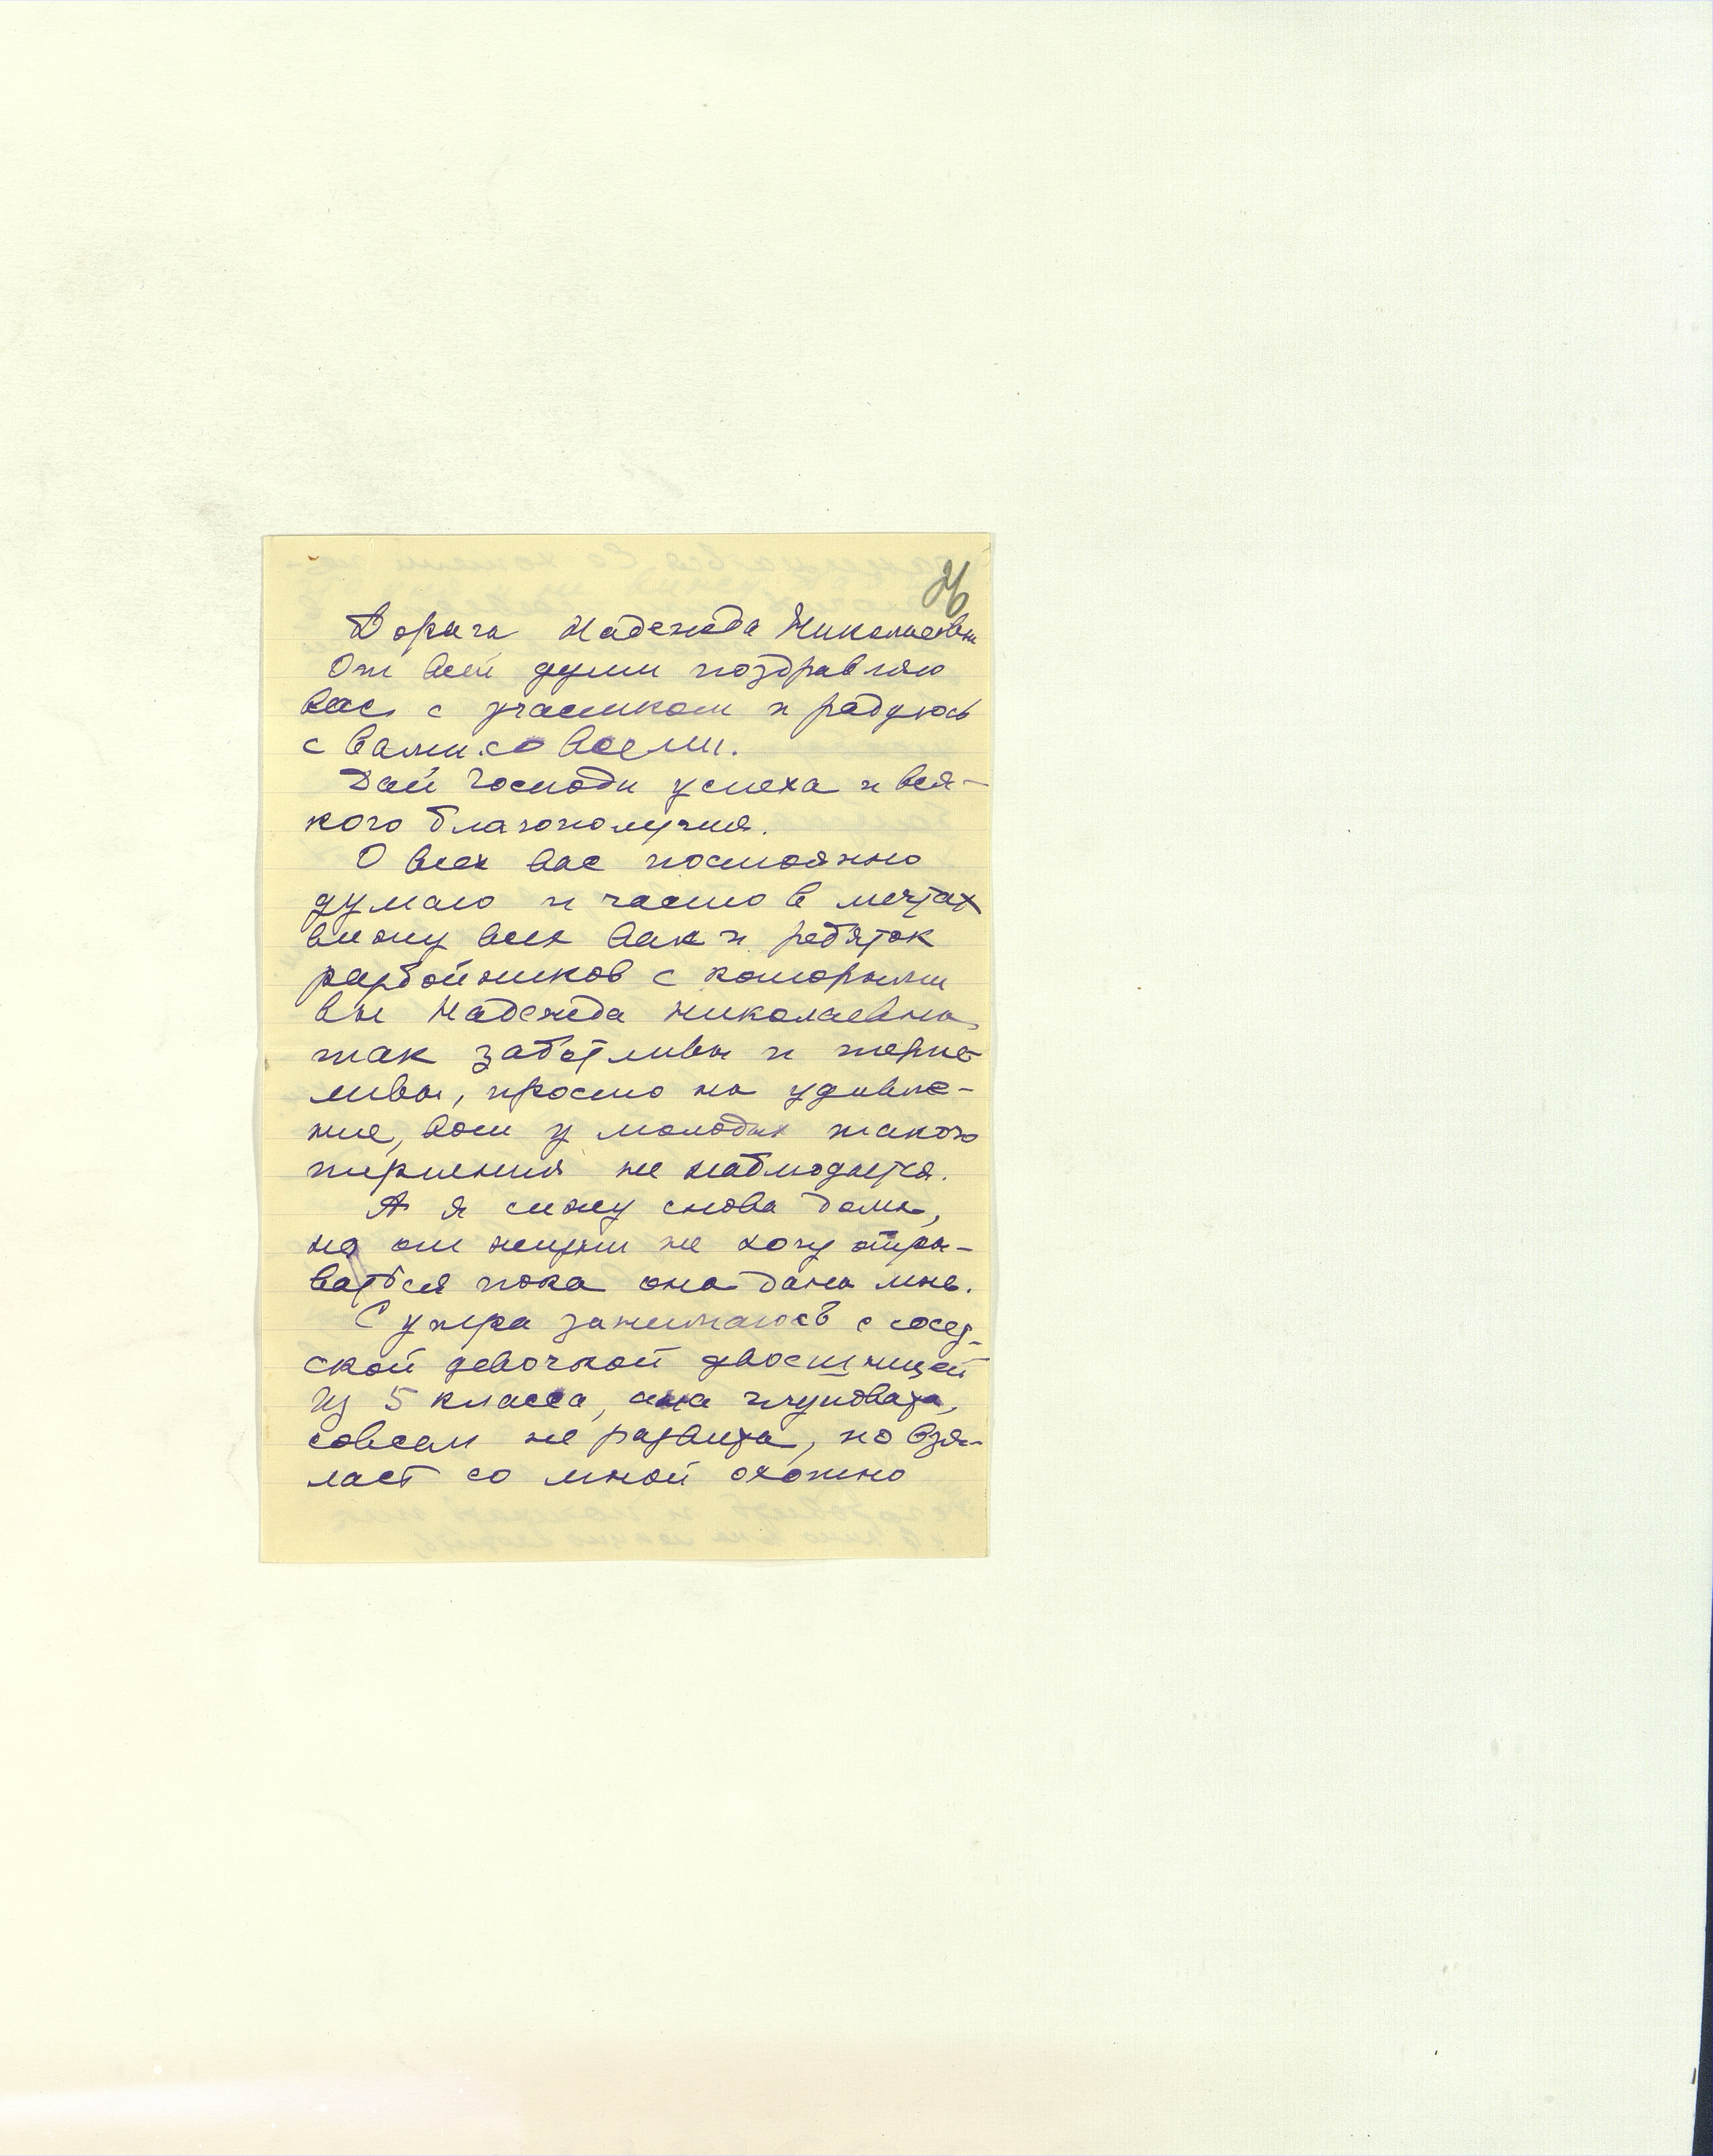 26
Дорога Надежда Николаевна
От всей души поздравляю
вас с участком и радуюсь
с вами со всеми.
Дай Господи успеха и вся-
кого благополучия.
О всех вас постоянно
думаю и часто в мечтах
вижу всех вас и ребяток
разбойников с которыми
вы Надежда Николаевна
так заботливы и терпе-
ливы, просто на удивле-
ние, вот у молодых такого
терпения не наблюдается.
А я сижу снова дома,
но от жизни не хочу отры-
ваться пока она дана мне.
С утра занимаюсь с сосед-
ской девочкой двоешницей
из 5 класса, она глуповата,
совсем не развита, но взя-
лась со мной охотно